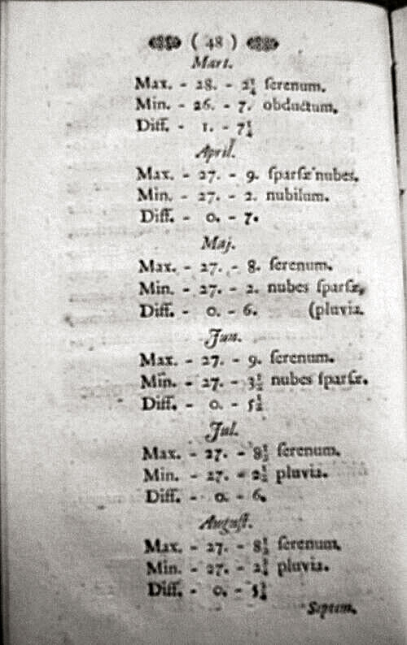 ( 48 )
Mart.
Max. - 28. - 2¼ ſerenum.
Min. - 26. - 7. obductum.
Diff. - 1. - 7¼
April.
Max. - 27. - 9. ſparſæ nubes.
Min. - 27. - 2. nubilum.
Diff. - 0. - 7.
Maj.
Max. - 27. - 8. ſerenum.
Min. - 27. - 2. nubes ſparſæ,
Diff. - 0. - 6. (pluvia.
Jun.
Max. - 27. - 9. ſerenum.
Min. - 27. - 3½ nubes ſparſæ.
Diff. - 0. - 5½
Jul.
Max. - 27. - 8½ ſerenum.
Min. - 27. - 2½ pluvia.
Diff. - 0. - 6.
Auguſt.
Max. - 27. - 8½ ſerenum.
Min. - 27. - pluvia.
Diff. - 0. -
Septem.